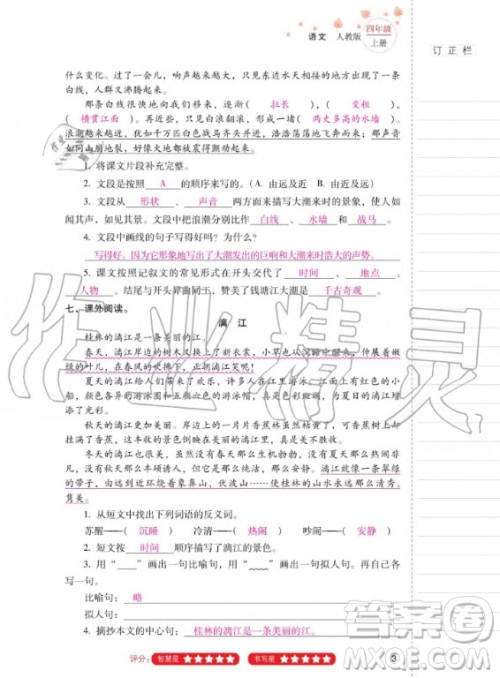 语文 人教版 四年级 上册
订正栏
什么变化。过了一会儿，响声越来越大，只见东边水天相接的地方出现了一条
白线，人群又沸腾起来。
那条白线很快地向我们移来，逐渐（ 拉长 ），（ 变粗 ），
（ 横贯江面 ）。再近些，只见白浪翻滚，形成一堵（ 两丈多高的水墙 ）。
浪潮越来越近，犹如千万匹白色战马齐头并进，浩浩荡荡地飞奔而来；那声音
如同山崩地裂，好像大地都被震得颤动起来。
1. 将课文片段补充完整。
2. 文段是按照 A 的顺序来写的。（A. 由远及近 B. 由近及远）
3. 文段从 形状 、 声音 两方面来描写大潮来时的景象，使人们
如闻其声，如见其形。文段中把浪潮分别比作 白线 、 水墙 和 战马 。
4. 文段中画线的句子写得好吗？为什么？
写得好。因为它形象地写出了大潮发出的巨响和大潮来时浩大的声势。
5. 课文按照记叙文的常见形式在开头交代了 时间 、 地点 、
人物 。结尾与开头照应，赞美了钱塘江大潮是 千古奇观 。
七、课外阅读。
漓 江
桂林的漓江是一条美丽的江。
春天，漓江岸边的树木又换上了新衣裳，小草偷偷地探出头来，伸展着嫩
绿的叶儿，在春风的吹拂下，正朝漓江笑呢！
夏天的漓江给人们带来了许多欢乐。人们在江里游泳，江面上有红色的小
船，有颜色各异的游泳圈和五颜六色的游泳帽，真是美丽极了，给夏天的漓江增
添了光彩。
秋天的漓江更加美丽。岸边上的一片片香蕉林虽然枯黄了，可又大又黄的
香蕉却成熟了，丰收的香蕉林映在美丽的漓江里，漓江显得更加美丽。
冬天，漓江的水虽然没有春天那么生机勃勃，没有夏天那么热闹非凡，也
没有秋天那么果实累累，但是它有春夏秋天那么清那么美。漓江就像一条翠绿
的带子，由近到远环绕着象鼻山、伏波山……使桂林的山水永远那么清澈、
隽美。
1. 从短文中找出下列词语的反义词。
苏醒——（ 沉睡 ） 冷清——（ 热闹 ） 吵闹——（ 安静 ）
2. 短文按 时间 顺序描写了漓江的景色。
3. 用“____”画出一句比喻句，用“﹏﹏”画出一句拟人句。再自己各
写一句。
比喻句： 略
拟人句：
4. 摘抄本文的中心句： 桂林的漓江是一条美丽的江。
评分： 智慧星 ★★★★★ 书写星 ★★★★★
3
作业精灵
答案圈
MXQE.COM